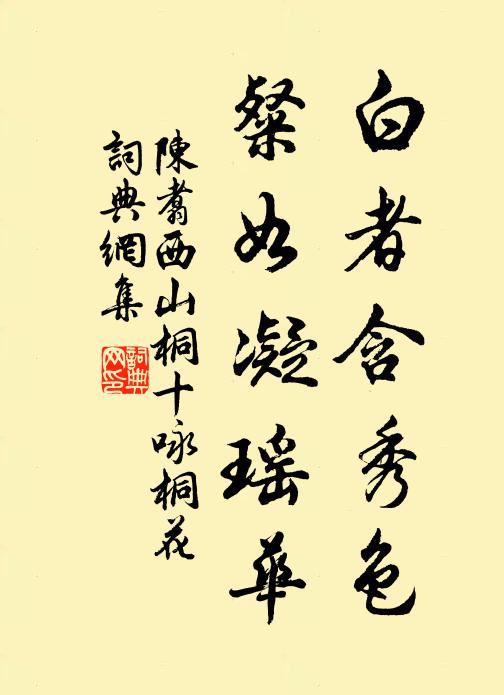 白者含秀色
粲如凝瑶華
陳翥西山桐十咏桐花
詞典網集
詞典
网印